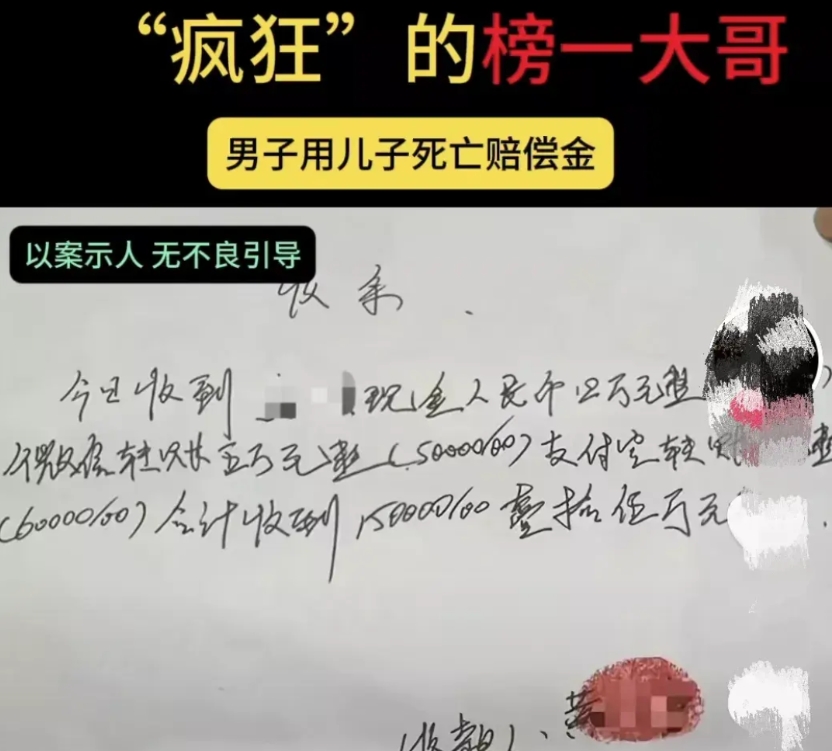 “疯狂”的榜一大哥
男子用儿子死亡赔偿金
以案示人 无不良引导
收条
今日收到 现金人民币四万元整
微信转账五万元整(50000/00)支付宝转账 整
(60000/00)合计收到150000/00壹拾伍万元
收款人：黄